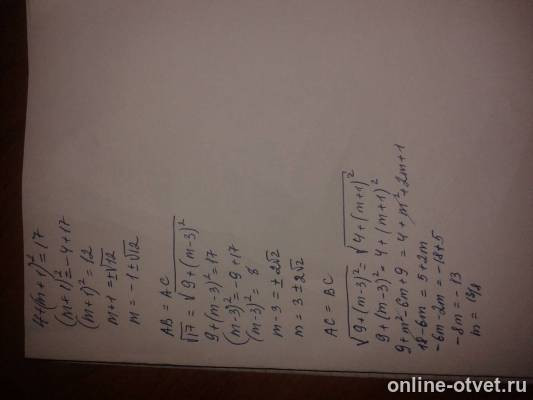 4+(m+1)²=17
(m+1)²=-4+17
(m+1)²=12
m+1=±√12
m=-1±√12
AB = AC
√17 = √9+(m-3)²
9+(m-3)²=17
(m-3)²=-9+17
(m-3)²= 8
m-3=±2√2
m=3±2√2
AC = BC
√9+(m-3)² = √4+(m+1)²
9+(m-3)²=4+(m+1)²
9+m²-6m+9=4+m²+2m+1
18-6m=5+2m
-6m-2m=-18+5
-8m=-13
m=13/8
online-otvet.ru